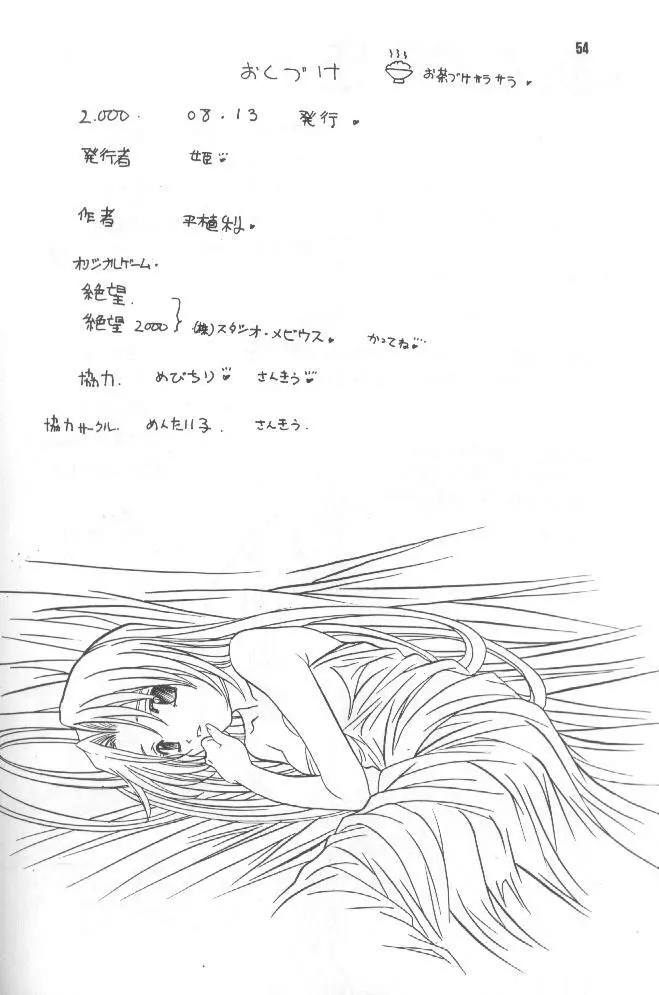 54
おくづけ お茶づけサラサラ。
2.000. 08.13 発行。
発行者 姫♡
作者 平植利。
オリジナルゲーム.
絶望.
絶望 2000 } (株)スタジオ・メビウス。 かってね♡
協力. めびちり♡ さんきう♡
協力サークル. めんたい子. さんきう.